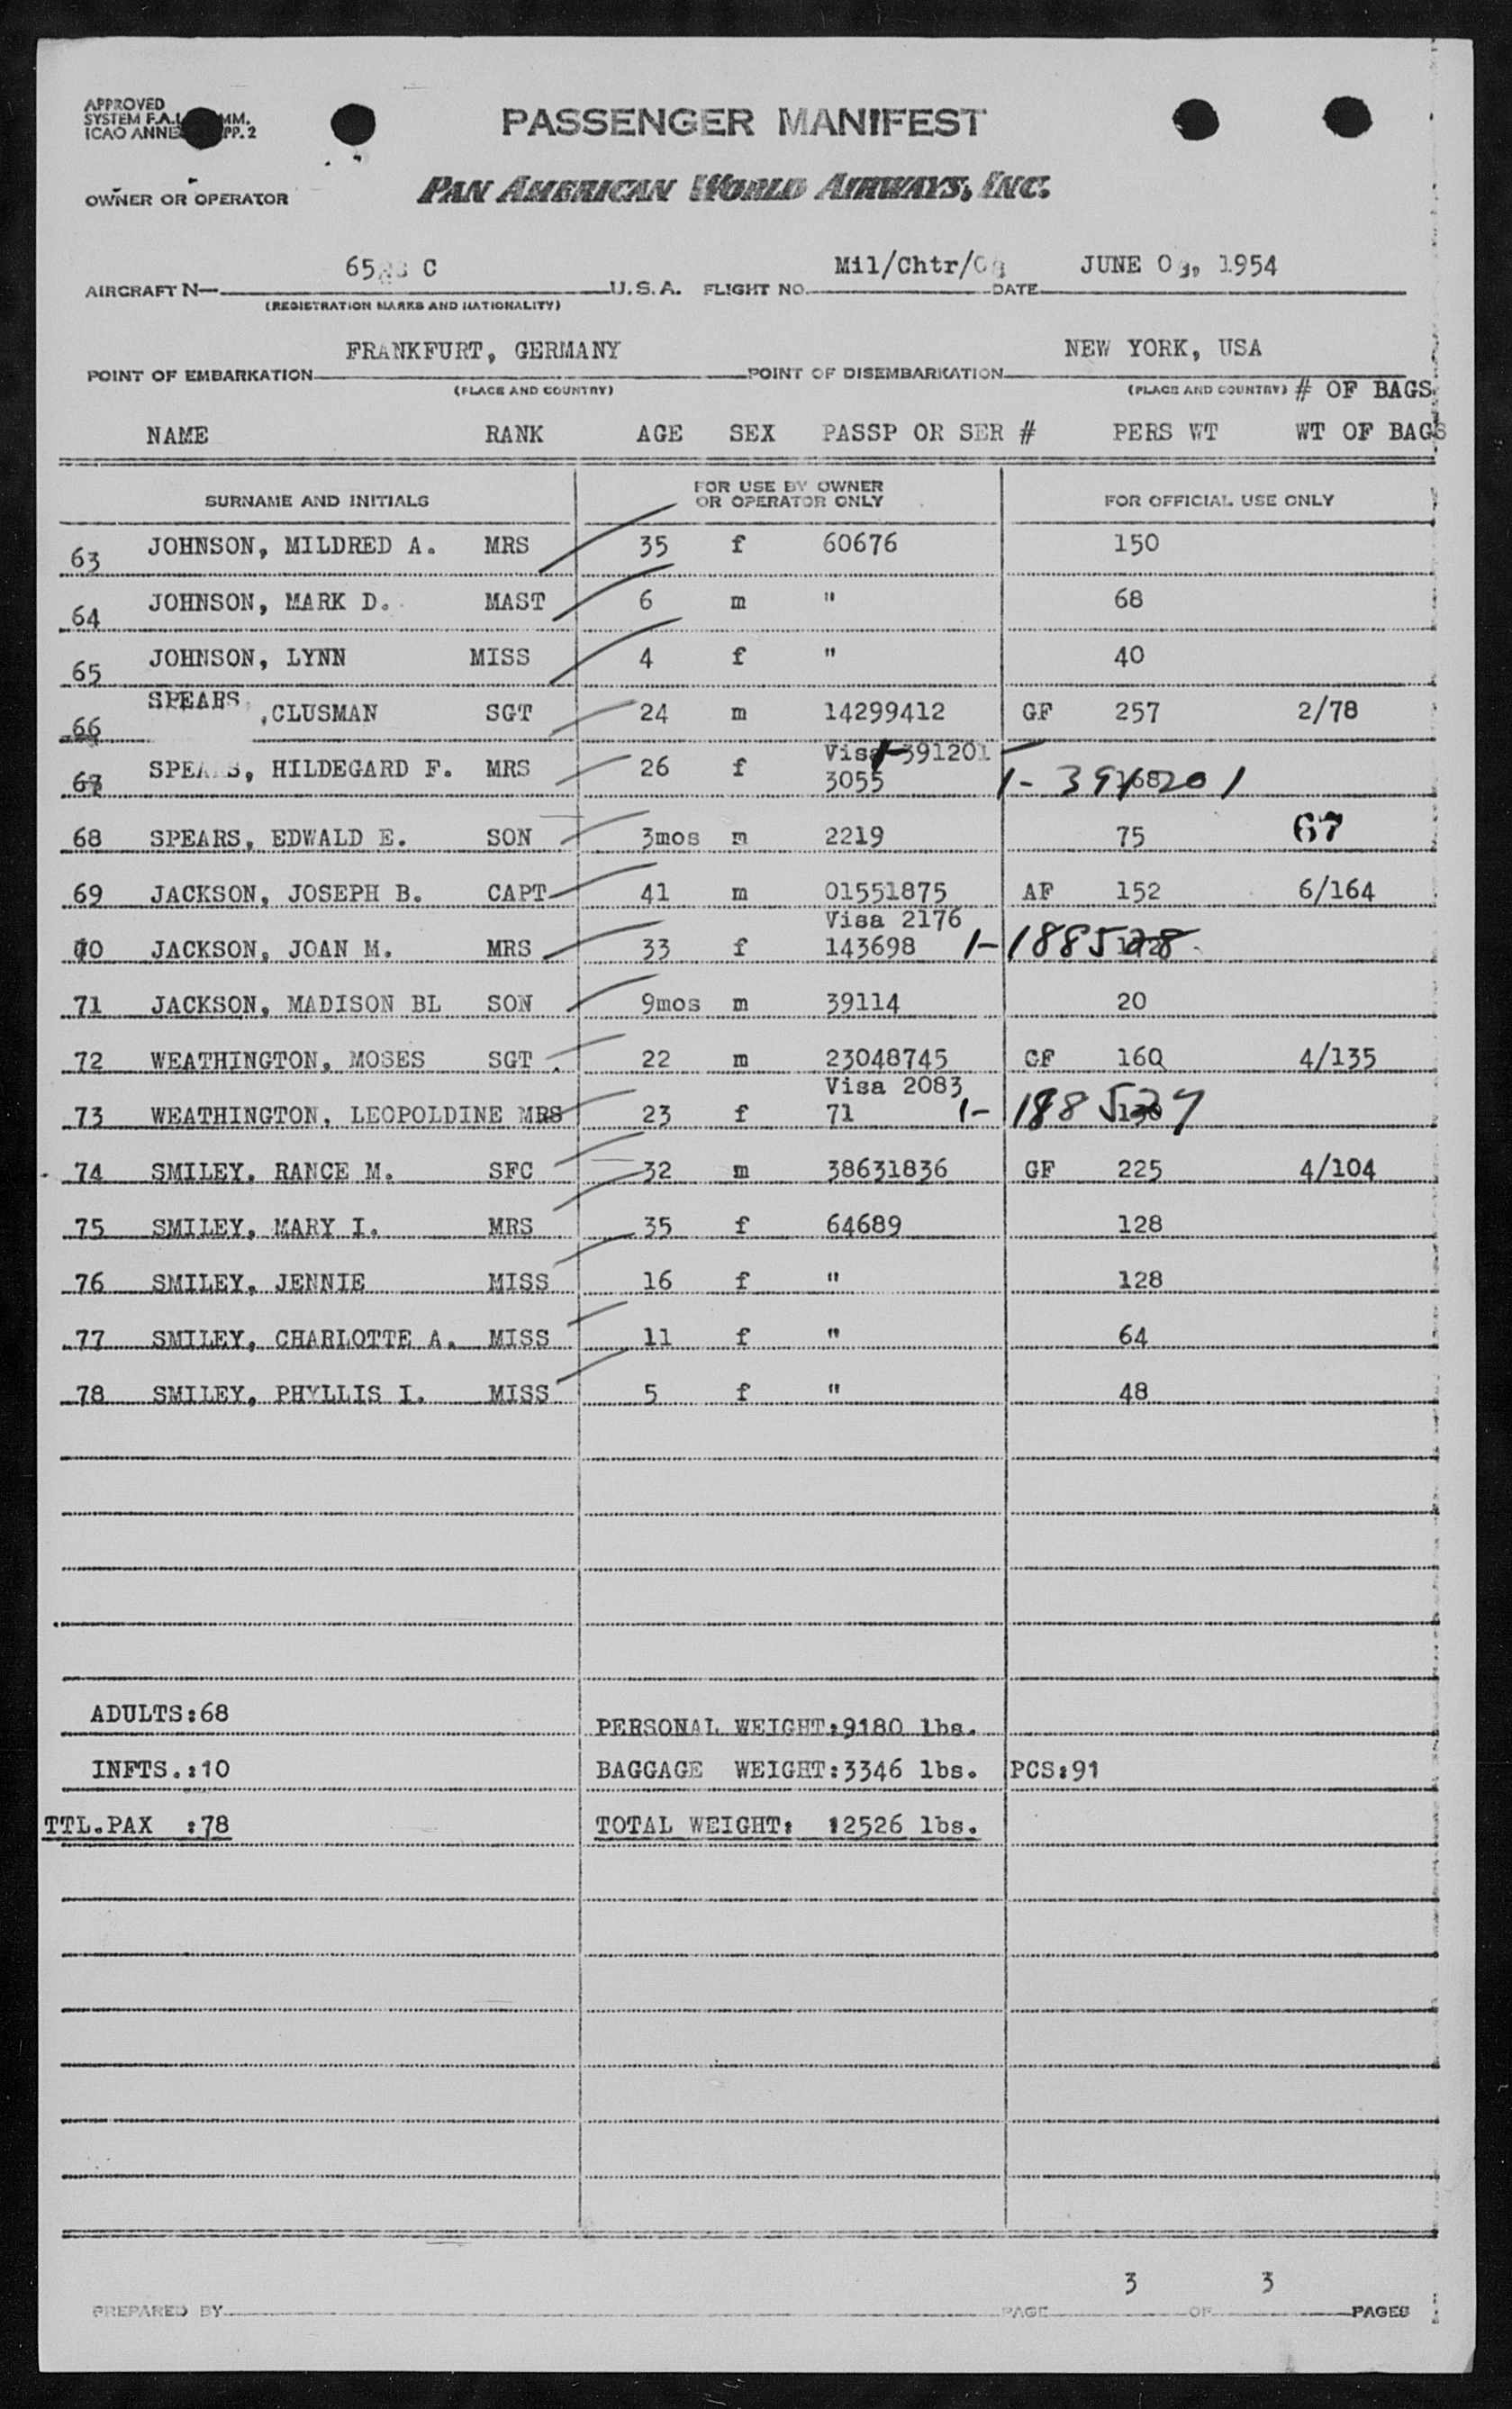 APPROVED
SYSTEM F.A.L. COMM.
ICAO ANNE PP. 2
PASSENGER MANIFEST
OWNER OR OPERATOR PAN AMERICAN WORLD AIRWAYS, INC.
AIRCRAFT N— C U.S.A. FLIGHT NO. Mil/Chtr/ DATE JUNE 1954
(REGISTRATION MARKS AND NATIONALITY)
POINT OF EMBARKATION FRANKFURT, GERMANY POINT OF DISEMBARKATION NEW YORK, USA
(PLACE AND COUNTRY) (PLACE AND COUNTRY) # OF BAGS
NAME RANK AGE SEX PASSP OR SER # PERS WT WT OF BAGS
SURNAME AND INITIALS FOR USE BY OWNER OR OPERATOR ONLY FOR OFFICIAL USE ONLY
63 JOHNSON, MILDRED A. MRS 35 f 60676 150
64 JOHNSON, MARK D. MAST 6 m " 68
65 JOHNSON, LYNN MISS 4 f " 40
66 SPEARS, CLUSMAN SGT 24 m 14299412 GF 257 2/78
Visa 1-391201
67 SPEARS, HILDEGARD F. MRS 26 f 3055 1-391201
68 SPEARS, EDWALD E. SON 3mos m 2219 75 67
69 JACKSON, JOSEPH B. CAPT 41 m 01551875 AF 152 6/164
Visa 2176
70 JACKSON, JOAN M. MRS 33 f 143698 1-188528
71 JACKSON, MADISON BL SON 9mos m 39114 20
72 WEATHINGTON, MOSES SGT 22 m 23048745 GF 160 4/135
Visa 2083
73 WEATHINGTON, LEOPOLDINE MRS 23 f 71 1-188527
74 SMILEY, RANCE M. SFC 32 m 38631836 GF 225 4/104
75 SMILEY, MARY I. MRS 35 f 64689 128
76 SMILEY, JENNIE MISS 16 f " 128
77 SMILEY, CHARLOTTE A. MISS 11 f " 64
78 SMILEY, PHYLLIS I. MISS 5 f " 48
ADULTS:68 PERSONAL WEIGHT:9180 lbs.
INFTS.:10 BAGGAGE WEIGHT:3346 lbs. PCS:91
TTL.PAX :78 TOTAL WEIGHT: 12526 lbs.
PREPARED BY PAGE 3 OF 3 PAGES